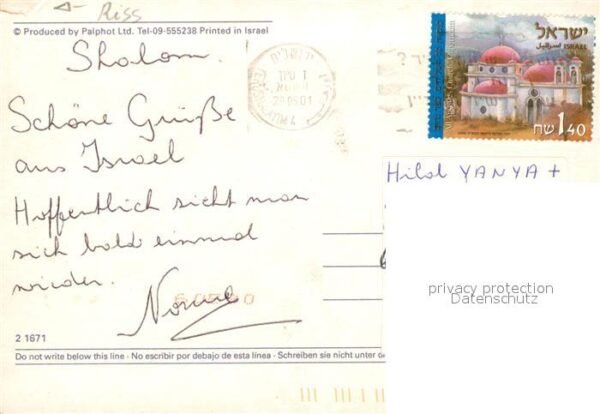 Riss
© Produced by Palphot Ltd. Tel-09-555238 Printed in Israel
ישראל
اسرائيل ISRAEL
1.40 ש"ח
29.05.01
Shalom.
Schöne Grüße
aus Israel
Hoffentlich sieht man
sich bald einmal
wieder.
Hilal YANYA +
privacy protection
Datenschutz
2 1671
Do not write below this line - No escribir por debajo de esta línea - Schreiben sie nicht unter